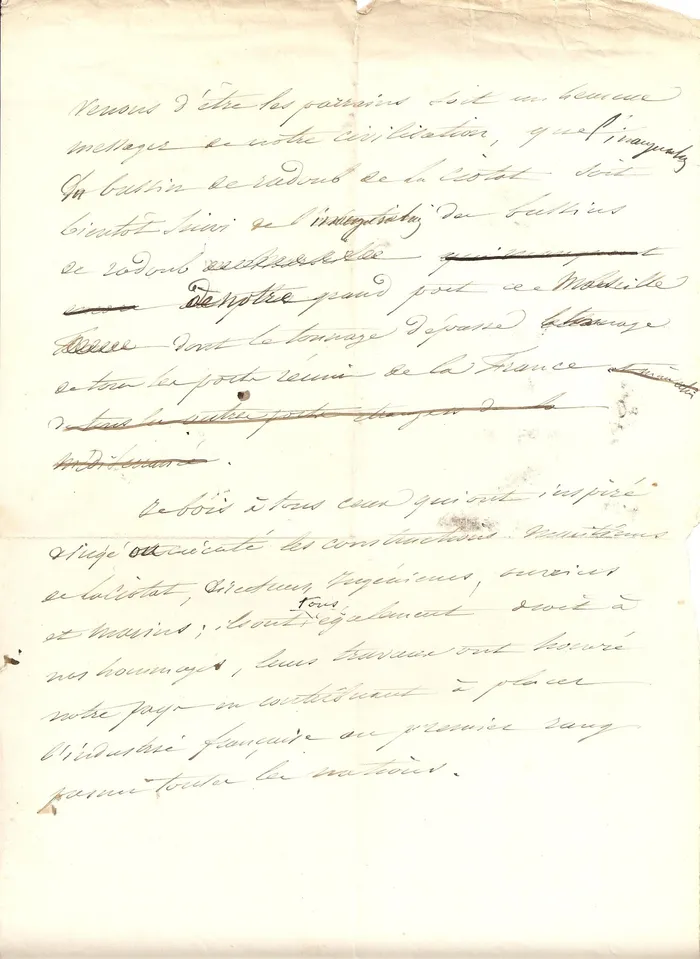 venons d'être les parrains soit un heureux
messager de notre civilisation, que l'inauguration
du bassin de radoub de la Ciotat soit
bientôt suivi de l'inauguration des bassins
de radoub qui manquent
de notre grand port de Marseille
dont le tonnage dépasse le tonnage
de tous les ports réunis de la France
de tous les autres ports étrangers de la
méditerranée.
Je bois à tous ceux qui ont inspiré
dirigé ou exécuté les constructions maritimes
de la Ciotat, directeurs, Ingénieurs, ouvriers
et marins ; ils ont tous également droit à
nos hommages, leurs travaux ont honoré
notre pays en contribuant à placer
l'industrie française au premier rang
parmi toutes les nations.